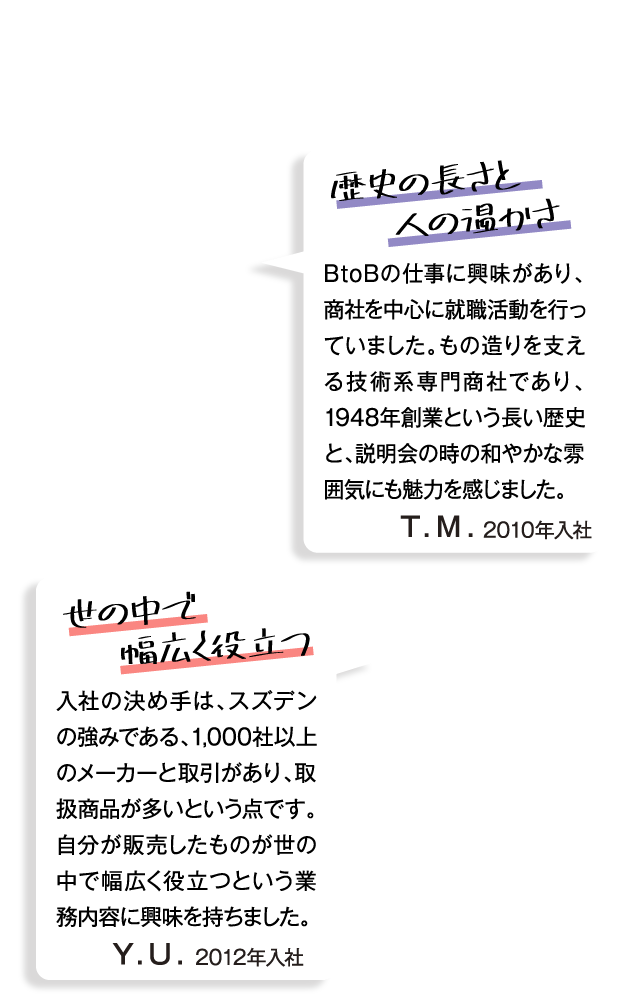 歴史の長さと
人の温かさ
BtoBの仕事に興味があり、
商社を中心に就職活動を行っ
ていました。もの造りを支え
る技術系専門商社であり、
1948年創業という長い歴史
と、説明会の時の和やかな雰
囲気にも魅力を感じました。
T.M. 2010年入社
世の中で
幅広く役立つ
入社の決め手は、スズデン
の強みである、1,000社以上
のメーカーと取引があり、取
扱商品が多いという点です。
自分が販売したものが世の
中で幅広く役立つという業
務内容に興味を持ちました。
Y.U. 2012年入社